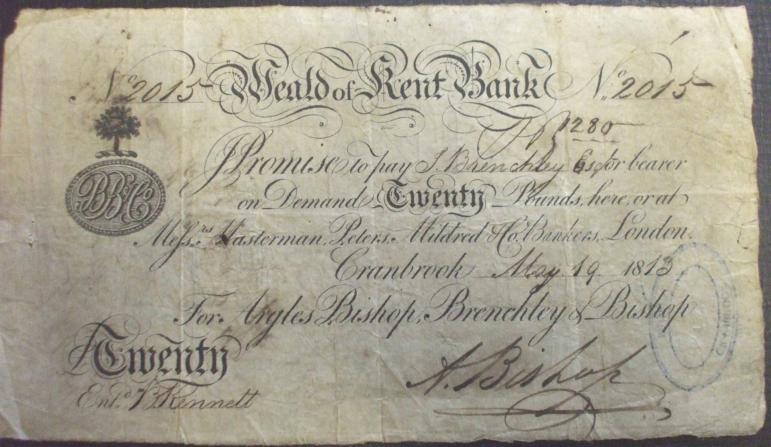 No. 2015 Weald of Kent Bank No. 2015
1280
I Promise to pay J. Brenchley Esq. or bearer
on Demand Twenty Pounds, here, or at
Messrs. Masterman, Peters, Mildred & Co. Bankers, London.
Cranbrook May 19 1813
For Argles Bishop, Brenchley & Bishop
Twenty
A. Bishop
Entd. Kennett